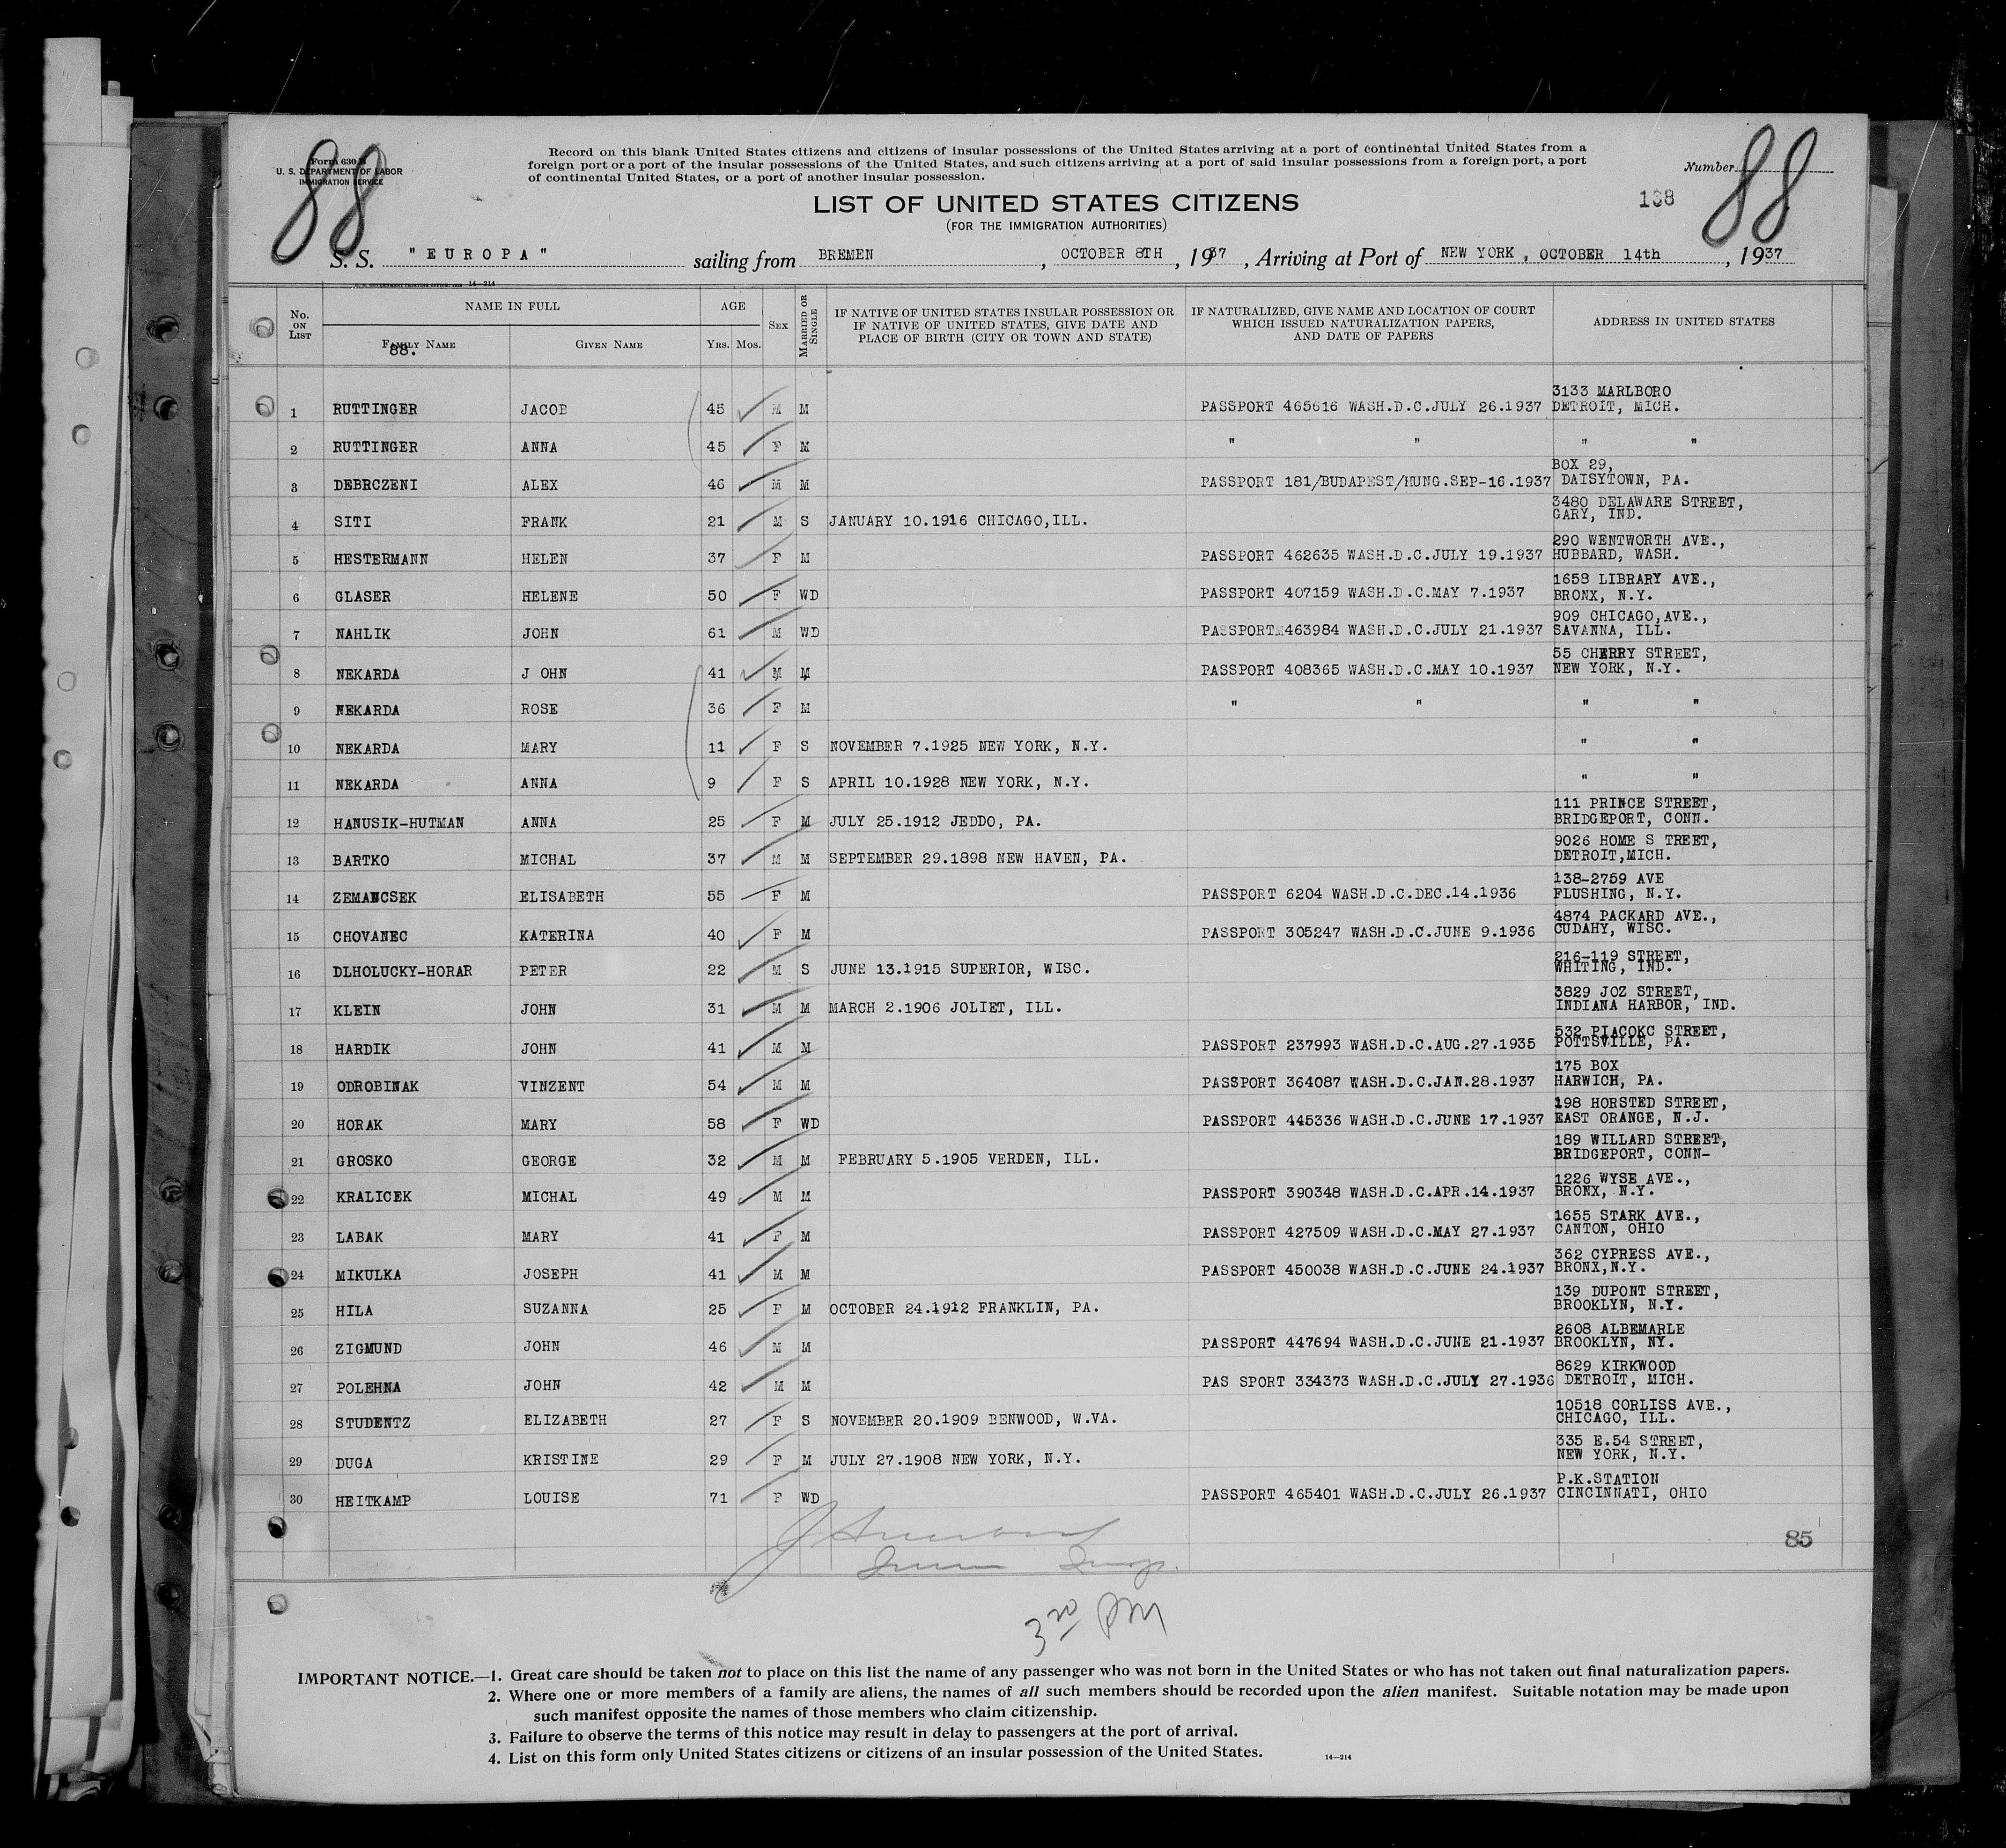 88
Form 630 B
U. S. DEPARTMENT OF LABOR
IMMIGRATION SERVICE
Record on this blank United States citizens and citizens of insular possessions of the United States arriving at a port of continental United States from a
foreign port or a port of the insular possessions of the United States, and such citizens arriving at a port of said insular possessions from a foreign port, a port
of continental United States, or a port of another insular possession.
Number 88
LIST OF UNITED STATES CITIZENS
(FOR THE IMMIGRATION AUTHORITIES)
S. S. "EUROPA" sailing from BREMEN, OCTOBER 8TH, 1937, Arriving at Port of NEW YORK, OCTOBER 14th, 1937
14—214
No. ON LIST NAME IN FULL FAMILY NAME GIVEN NAME AGE YRS. MOS. SEX MARRIED OR SINGLE IF NATIVE OF UNITED STATES INSULAR POSSESSION OR IF NATIVE OF UNITED STATES, GIVE DATE AND PLACE OF BIRTH (CITY OR TOWN AND STATE) IF NATURALIZED, GIVE NAME AND LOCATION OF COURT WHICH ISSUED NATURALIZATION PAPERS, AND DATE OF PAPERS ADDRESS IN UNITED STATES
88.
3133 MARLBORO
1 RUTTINGER JACOB 45 M M PASSPORT 465616 WASH.D.C.JULY 26.1937 DETROIT, MICH.
2 RUTTINGER ANNA 45 F M " " " "
BOX 29,
3 DEBRCZENI ALEX 46 M M PASSPORT 181/BUDAPEST/HUNG.SEP-16.1937 DAISYTOWN, PA.
3480 DELAWARE STREET,
4 SITI FRANK 21 M S JANUARY 10.1916 CHICAGO,ILL. GARY, IND.
290 WENTWORTH AVE.,
5 HESTERMANN HELEN 37 F M PASSPORT 462635 WASH.D.C.JULY 19.1937 HUBBARD, WASH.
1658 LIBRARY AVE.,
6 GLASER HELENE 50 F WD PASSPORT 407159 WASH.D.C.MAY 7.1937 BRONX, N.Y.
909 CHICAGO,AVE.,
7 NAHLIK JOHN 61 M WD PASSPORT 463984 WASH.D.C.JULY 21.1937 SAVANNA, ILL.
55 CHERRY STREET,
8 NEKARDA J OHN 41 M M PASSPORT 408365 WASH.D.C.MAY 10.1937 NEW YORK, N.Y.
9 NEKARDA ROSE 36 F M " " " "
10 NEKARDA MARY 11 F S NOVEMBER 7.1925 NEW YORK, N.Y. " "
11 NEKARDA ANNA 9 F S APRIL 10.1928 NEW YORK, N.Y. " "
111 PRINCE STREET,
12 HANUSIK-HUTMAN ANNA 25 F M JULY 25.1912 JEDDO, PA. BRIDGEPORT, CONN.
9026 HOME S TREET,
13 BARTKO MICHAL 37 M M SEPTEMBER 29.1898 NEW HAVEN, PA. DETROIT,MICH.
138-2759 AVE
14 ZEMANCSEK ELISABETH 55 F M PASSPORT 6204 WASH.D.C.DEC.14.1936 FLUSHING, N.Y.
4874 PACKARD AVE.,
15 CHOVANEC KATERINA 40 F M PASSPORT 305247 WASH.D.C.JUNE 9.1936 CUDAHY, WISC.
216-119 STREET,
16 DLHOLUCKY-HORAR PETER 22 M S JUNE 13.1915 SUPERIOR, WISC. WHITING, IND.
3829 JOZ STREET,
17 KLEIN JOHN 31 M M MARCH 2.1906 JOLIET, ILL. INDIANA HARBOR, IND.
532 PIACOKC STREET,
18 HARDIK JOHN 41 M M PASSPORT 237993 WASH.D.C.AUG.27.1935 POTTSVILLE, PA.
175 BOX
19 ODROBINAK VINZENT 54 M M PASSPORT 364087 WASH.D.C.JAN.28.1937 HARWICH, PA.
198 HORSTED STREET,
20 HORAK MARY 58 F WD PASSPORT 445336 WASH.D.C.JUNE 17.1937 EAST ORANGE, N.J.
189 WILLARD STREET,
21 GROSKO GEORGE 32 M M FEBRUARY 5.1905 VERDEN, ILL. BRIDGEPORT, CONN-
1226 WYSE AVE.,
22 KRALICEK MICHAL 49 M M PASSPORT 390348 WASH.D.C.APR.14.1937 BRONX, N.Y.
1655 STARK AVE.,
23 LABAK MARY 41 F M PASSPORT 427509 WASH.D.C.MAY 27.1937 CANTON, OHIO
362 CYPRESS AVE.,
24 MIKULKA JOSEPH 41 M M PASSPORT 450038 WASH.D.C.JUNE 24.1937 BRONX,N.Y.
139 DUPONT STREET,
25 HILA SUZANNA 25 F M OCTOBER 24.1912 FRANKLIN, PA. BROOKLYN, N.Y.
2608 ALBEMARLE
26 ZIGMUND JOHN 46 M M PASSPORT 447694 WASH.D.C.JUNE 21.1937 BROOKLYN, NY.
8629 KIRKWOOD
27 POLEHNA JOHN 42 M M PAS SPORT 334373 WASH.D.C.JULY 27.1936 DETROIT, MICH.
10518 CORLISS AVE.,
28 STUDENTZ ELIZABETH 27 F S NOVEMBER 20.1909 BENWOOD, W.VA. CHICAGO, ILL.
335 E.54 STREET,
29 DUGA KRISTINE 29 F M JULY 27.1908 NEW YORK, N.Y. NEW YORK, N.Y.
P.K.STATION
30 HEITKAMP LOUISE 71 F WD PASSPORT 465401 WASH.D.C.JULY 26.1937 CINCINNATI, OHIO
85
3 20 PM
IMPORTANT NOTICE.—1. Great care should be taken not to place on this list the name of any passenger who was not born in the United States or who has not taken out final naturalization papers.
2. Where one or more members of a family are aliens, the names of all such members should be recorded upon the alien manifest. Suitable notation may be made upon
such manifest opposite the names of those members who claim citizenship.
3. Failure to observe the terms of this notice may result in delay to passengers at the port of arrival.
4. List on this form only United States citizens or citizens of an insular possession of the United States.
14—214